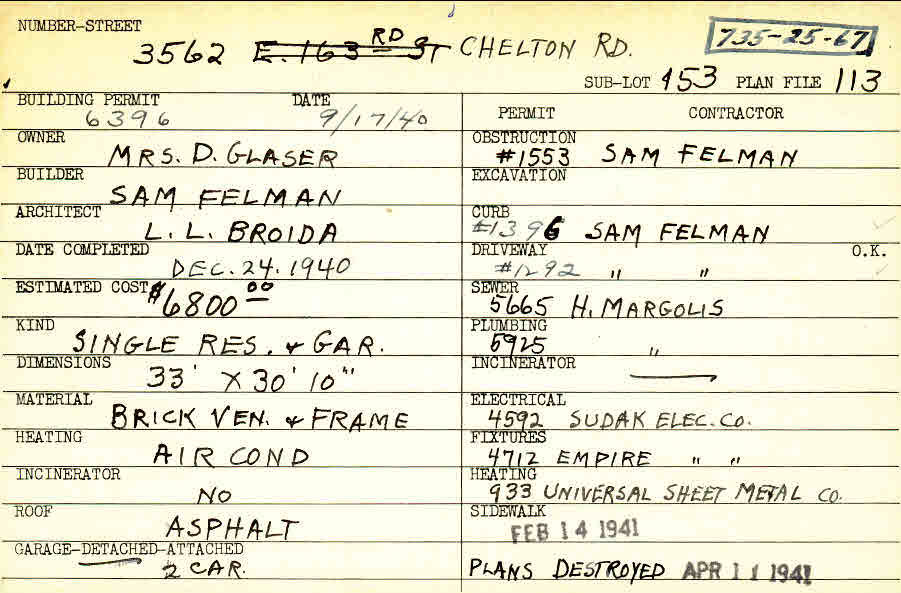 NUMBER-STREET
3562 E. 163 RD ST CHELTON RD. 735-25-67
SUB-LOT 153 PLAN FILE 113
BUILDING PERMIT DATE
6396 9/17/40
OWNER
MRS. D. GLASER
BUILDER
SAM FELMAN
ARCHITECT
L. L. BROIDA
DATE COMPLETED
DEC. 24. 1940
ESTIMATED COST
$6800 00
KIND
SINGLE RES. & GAR.
DIMENSIONS
33' X 30' 10"
MATERIAL
BRICK VEN. & FRAME
HEATING
AIR COND
INCINERATOR
NO
ROOF
ASPHALT
GARAGE-DETACHED-ATTACHED
2 CAR.
PERMIT CONTRACTOR
OBSTRUCTION
#1553 SAM FELMAN
EXCAVATION
CURB
#1396 SAM FELMAN
DRIVEWAY O.K.
#1292 " "
SEWER
5665 H. MARGOLIS
PLUMBING
5925 "
INCINERATOR
ELECTRICAL
4592 SUDAK ELEC. CO.
FIXTURES
4712 EMPIRE " "
HEATING
933 UNIVERSAL SHEET METAL CO.
SIDEWALK
FEB 14 1941
PLANS DESTROYED APR 11 1941